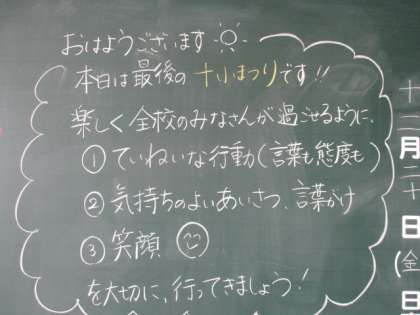 おはようございます
本日は最後の十小まつりです!!
楽しく全校のみなさんが過ごせるように、
①ていねいな行動(言葉も態度も)
②気持ちのよいあいさつ、言葉がけ
③笑顔
を大切に、行ってきましょう!
十二月二十日(金)日